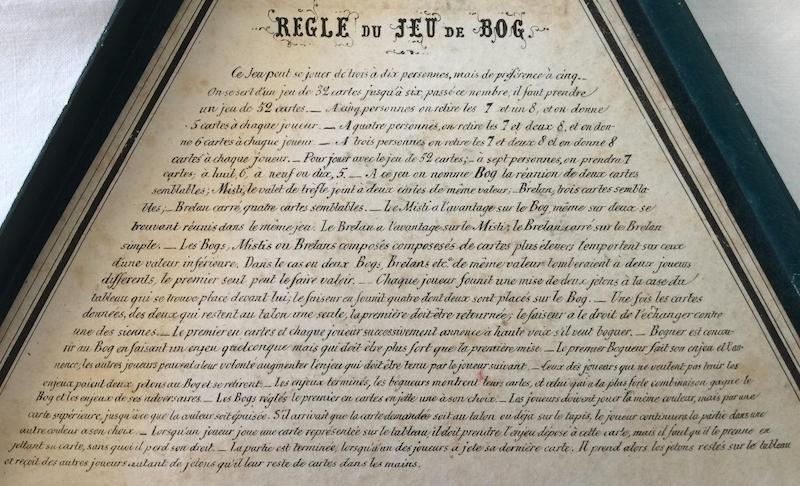 REGLE DU JEU DE BOG
Ce Jeu peut se jouer de trois à dix personnes, mais de préférence à cinq._
On se sert d'un jeu de 32 cartes jusqu'à six, passé ce nombre, il faut prendre
un jeu de 52 cartes. _ A cinq personnes on retire les 7 et un 8, et on donne
5 cartes à chaque joueur. _ A quatre personnes, on retire les 7 et deux 8, et on don-
ne 6 cartes à chaque joueur. _ A trois personnes on retire les 7 et deux 8 et on donne 8
cartes à chaque joueur. _ Pour jouer avec le jeu de 52 cartes; _ à sept personnes, on prendra 7
cartes, à huit, 6, à neuf ou dix, 5. _ A ce jeu on nomme Bog la réunion de deux cartes
semblables; Misti, le valet de trèfle joint à deux cartes de même valeur; _ Brelan, trois cartes sembla-
bles; _ Brelan carré, quatre cartes semblables. _ Le Misti a l'avantage sur le Bog, même sur deux se
trouvant réunis dans le même jeu. Le Brelan a l'avantage sur le Misti; le Brelan carré sur le Brelan
simple. _ Les Bogs, Mistis ou Brelans composés composesés de cartes plus élevées l'emportent sur ceux
d'une valeur inférieure. Dans le cas ou deux Bogs, Brelans etc. de même valeur tomberaient à deux joueurs
différents, le premier seul peut le faire valoir. _ Chaque joueur fournit une mise de deux jetons à la case du
tableau qui se trouve placé devant lui; le faiseur en fournit quatre dont deux sont placés sur le Bog. _ Une fois les cartes
données, des deux qui restent au talon une seule, la première doit être retournée; le faiseur a le droit de l'échanger contre
une des siennes. _ Le premier en cartes et chaque joueur successivement annonce à haute voix s'il veut boguer. _ Boguer est concou-
rir au Bog en faisant un enjeu quelconque mais qui doit être plus fort que la première mise. _ Le premier Bogueur fait son enjeu et l'an-
nonce, les autres joueurs peuvent à leur volonté augmenter l'enjeu qui doit être tenu par le joueur suivant. _ Ceux des joueurs qui ne veulent pas tenir les
enjeux paient deux jetons au Bog et se retirent. _ Les enjeux terminés, les bogueurs montrent leurs cartes, et celui qui a la plus forte combinaison gagne le
Bog et les enjeux de ses adversaires. _ Les Bogs réglés le premier en cartes jette une à son choix. _ Les joueurs doivent jouer la même couleur, mais par une
carte supérieure, jusqu'à ce que la couleur soit épuisée. S'il arrivait que la carte demandée soit au talon, ou déjà sur le tapis, le joueur continuera la partie dans une
autre couleur à son choix. _ Lorsqu'un joueur joue une carte représentée sur le tableau, il doit prendre l'enjeu déposé à cette carte, mais il faut qu'il le prenne en
jettant sa carte, sans quoi il perd son droit. _ La partie est terminée, lorsqu'un des joueurs a jeté sa dernière carte. Il prend alors les jetons restés sur le tableau
et reçoit des autres joueurs autant de jetons qu'il leur reste de cartes dans les mains.